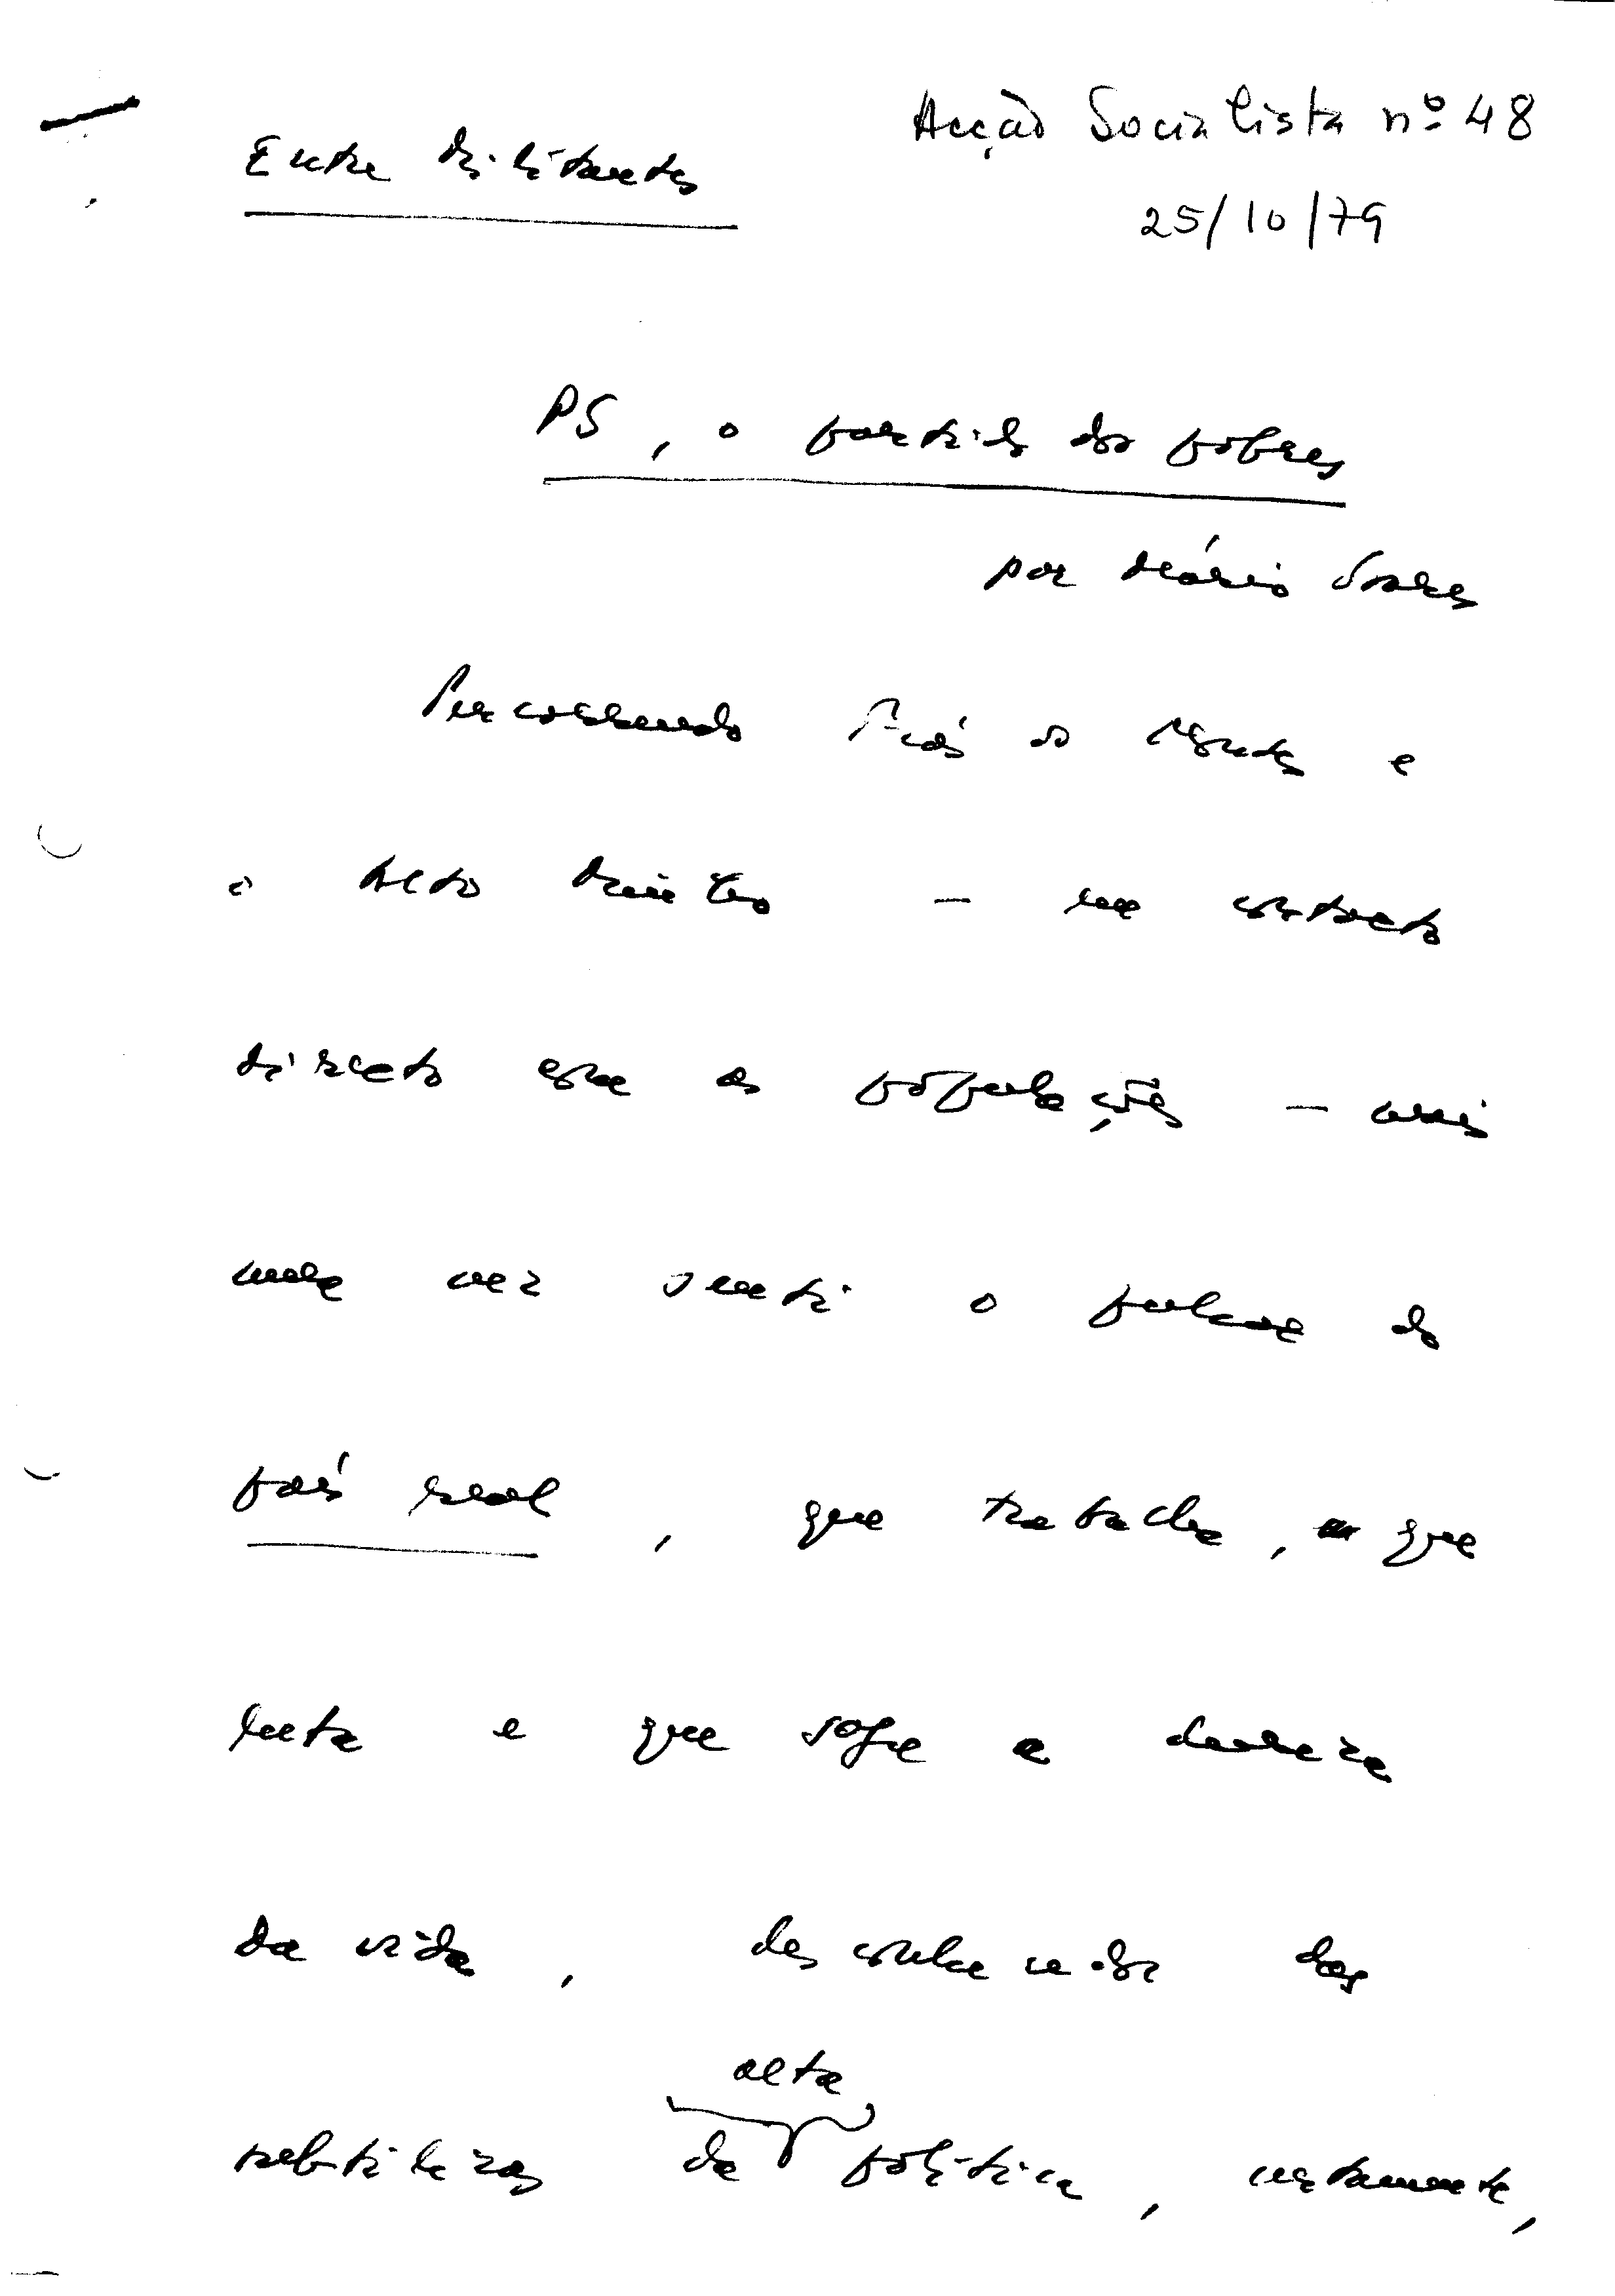 Acção Socialista nº 48
Entre Militantes
25/10/79
PS, o partido dos pobres
por Mário Soares
Percorrendo Trás os Montes e
o Alto Minho – em contacto
directo com as populações – mais
uma vez senti o pulsar do
país real, que trabalha, que
luta e que sofre a dureza
da vida, desconhecedor das
alta
subtilezas da política, certamente,